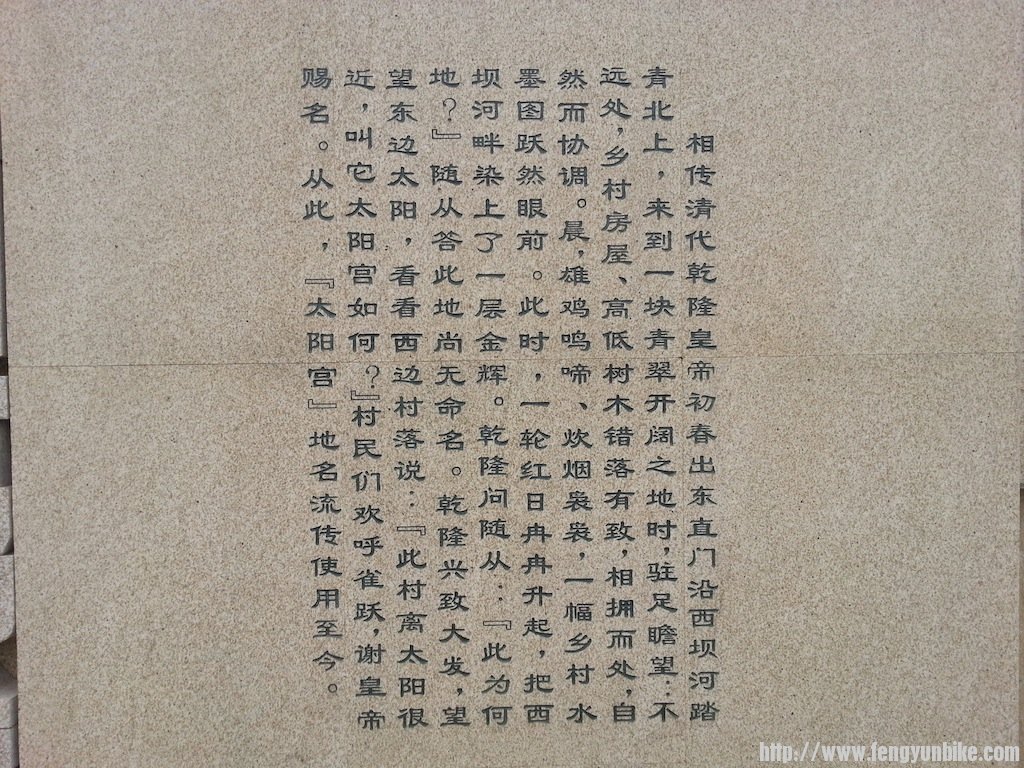 相传清代乾隆皇帝初春出东直门沿西坝河踏
青北上，来到一块青翠开阔之地时，驻足瞻望：不
远处，乡村房屋、高低树木错落有致，相拥而处，自
然而协调。晨，雄鸡鸣啼、炊烟袅袅，一幅乡村水
墨图跃然眼前。此时，一轮红日冉冉升起，把西
坝河畔染上了一层金辉。乾隆问随从：『此为何
地？』随从答此地尚无命名。乾隆兴致大发，望
望东边太阳，看看西边村落说：『此村离太阳很
近，叫它太阳宫如何？』村民们欢呼雀跃，谢皇帝
赐名。从此，『太阳宫』地名流传使用至今。
http://www.fengyunbike.com